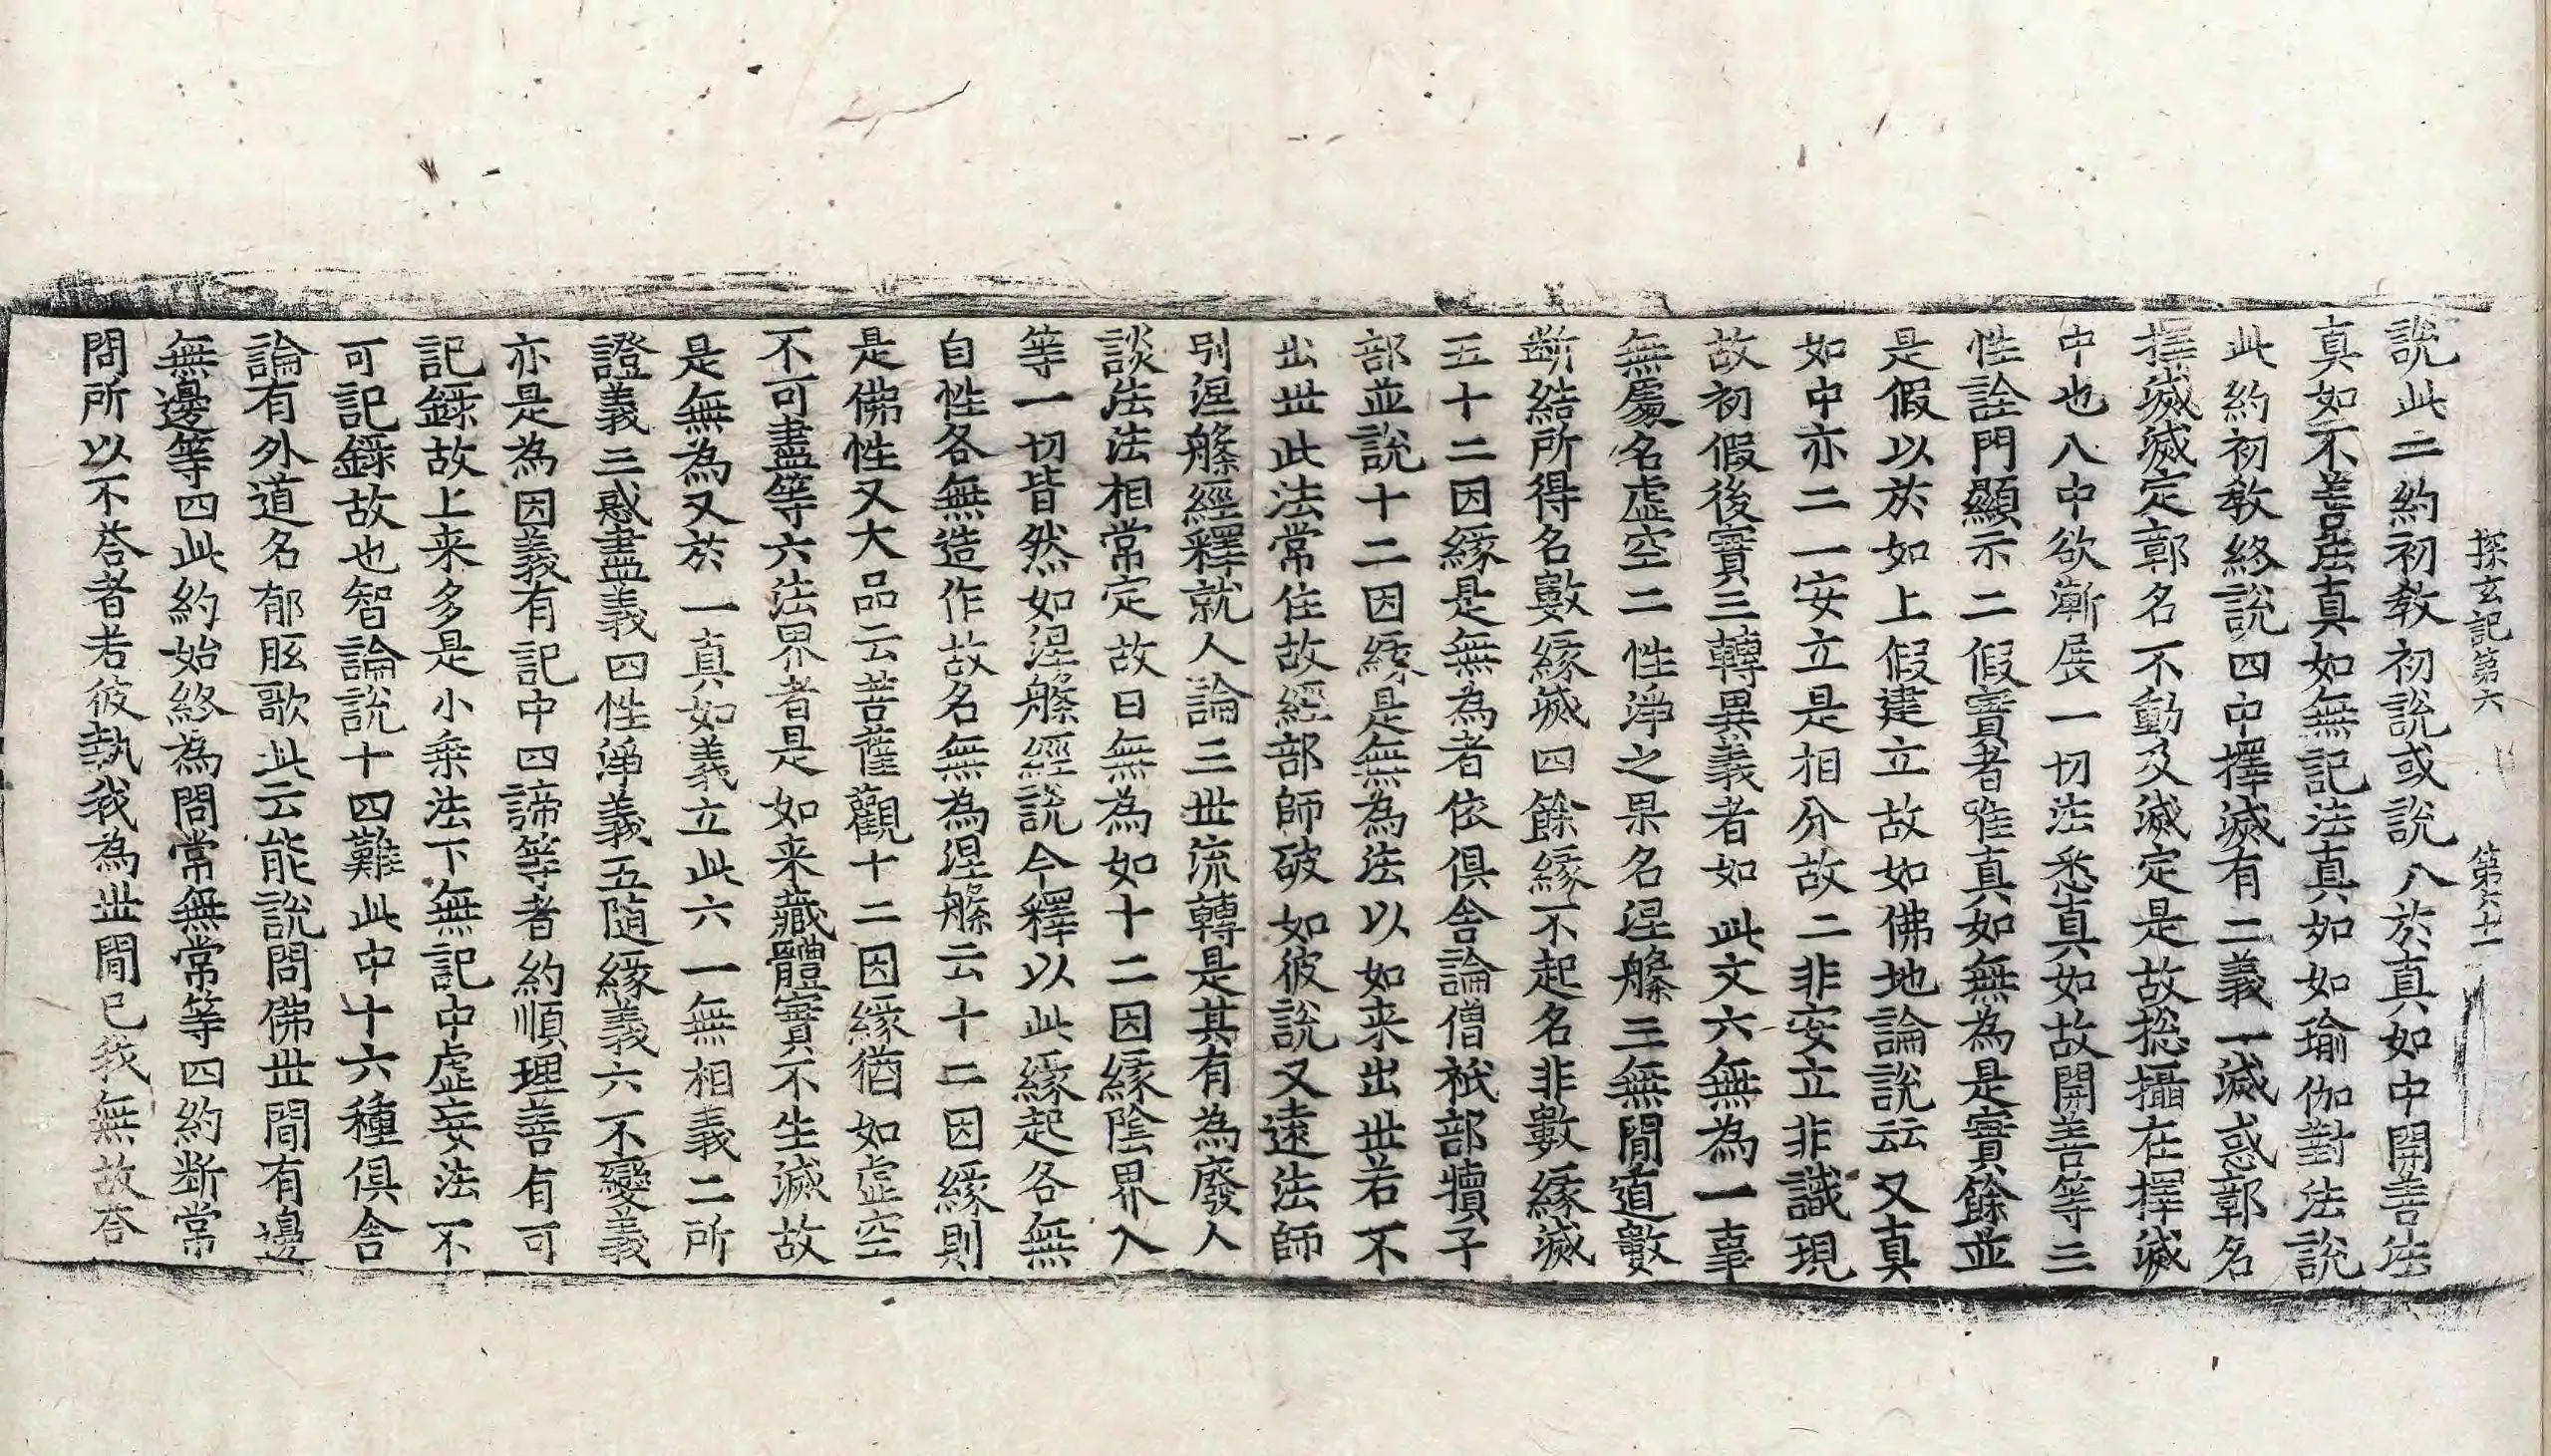 探玄記第六 第六十一
說此二約初教初說或說八於真如中開善法
真如不善法真如無記法真如如瑜伽對法說
此約初教終說四中擇滅有二義一滅惑鄣名
擇滅滅定鄣名不動及滅定是故捴攝在擇滅
中也八中欲漸展一切法悉真如故開善等三
性詮門顯示二假實者唯真如無為是實餘並
是假以於如上假建立故如佛地論說云又真
如中亦二一安立是相分故二非安立非識現
故初假後實三轉異義者如此文六無為一事
無處名虛空二性淨之果名涅槃三無間道數
斷結所得名數緣滅四餘緣不起名非數緣滅
五十二因緣是無為者依俱舍論僧祇部犢子
部並說十二因緣是無為法以如来出世若不
出世此法常住故經部師破如彼說又遠法師
別涅槃經釋就人論三世流轉是其有為廢人
談法法相常定故曰無為如十二因緣陰界入
等一切皆然如涅槃經說今釋以此緣起各無
自性各無造作故名無為涅槃云十二因緣則
是佛性又大品云菩薩觀十二因緣猶如虛空
不可盡等六法界者是如来藏體實不生滅故
是無為又於一真如義立此六一無相義二所
證義三惑盡義四性淨義五随緣義六不變義
亦是為因義有記中四諦等者約順理善有可
記錄故上来多是小乗法下無記中虛妄法不
可記錄故也智論說十四難此中十六種俱舍
論有外道名郁胘歌此云能說問佛世間有邊
無邊等四此約始終為問常無常等四約断常
問所以不荅者若彼執我為世間已我無故荅